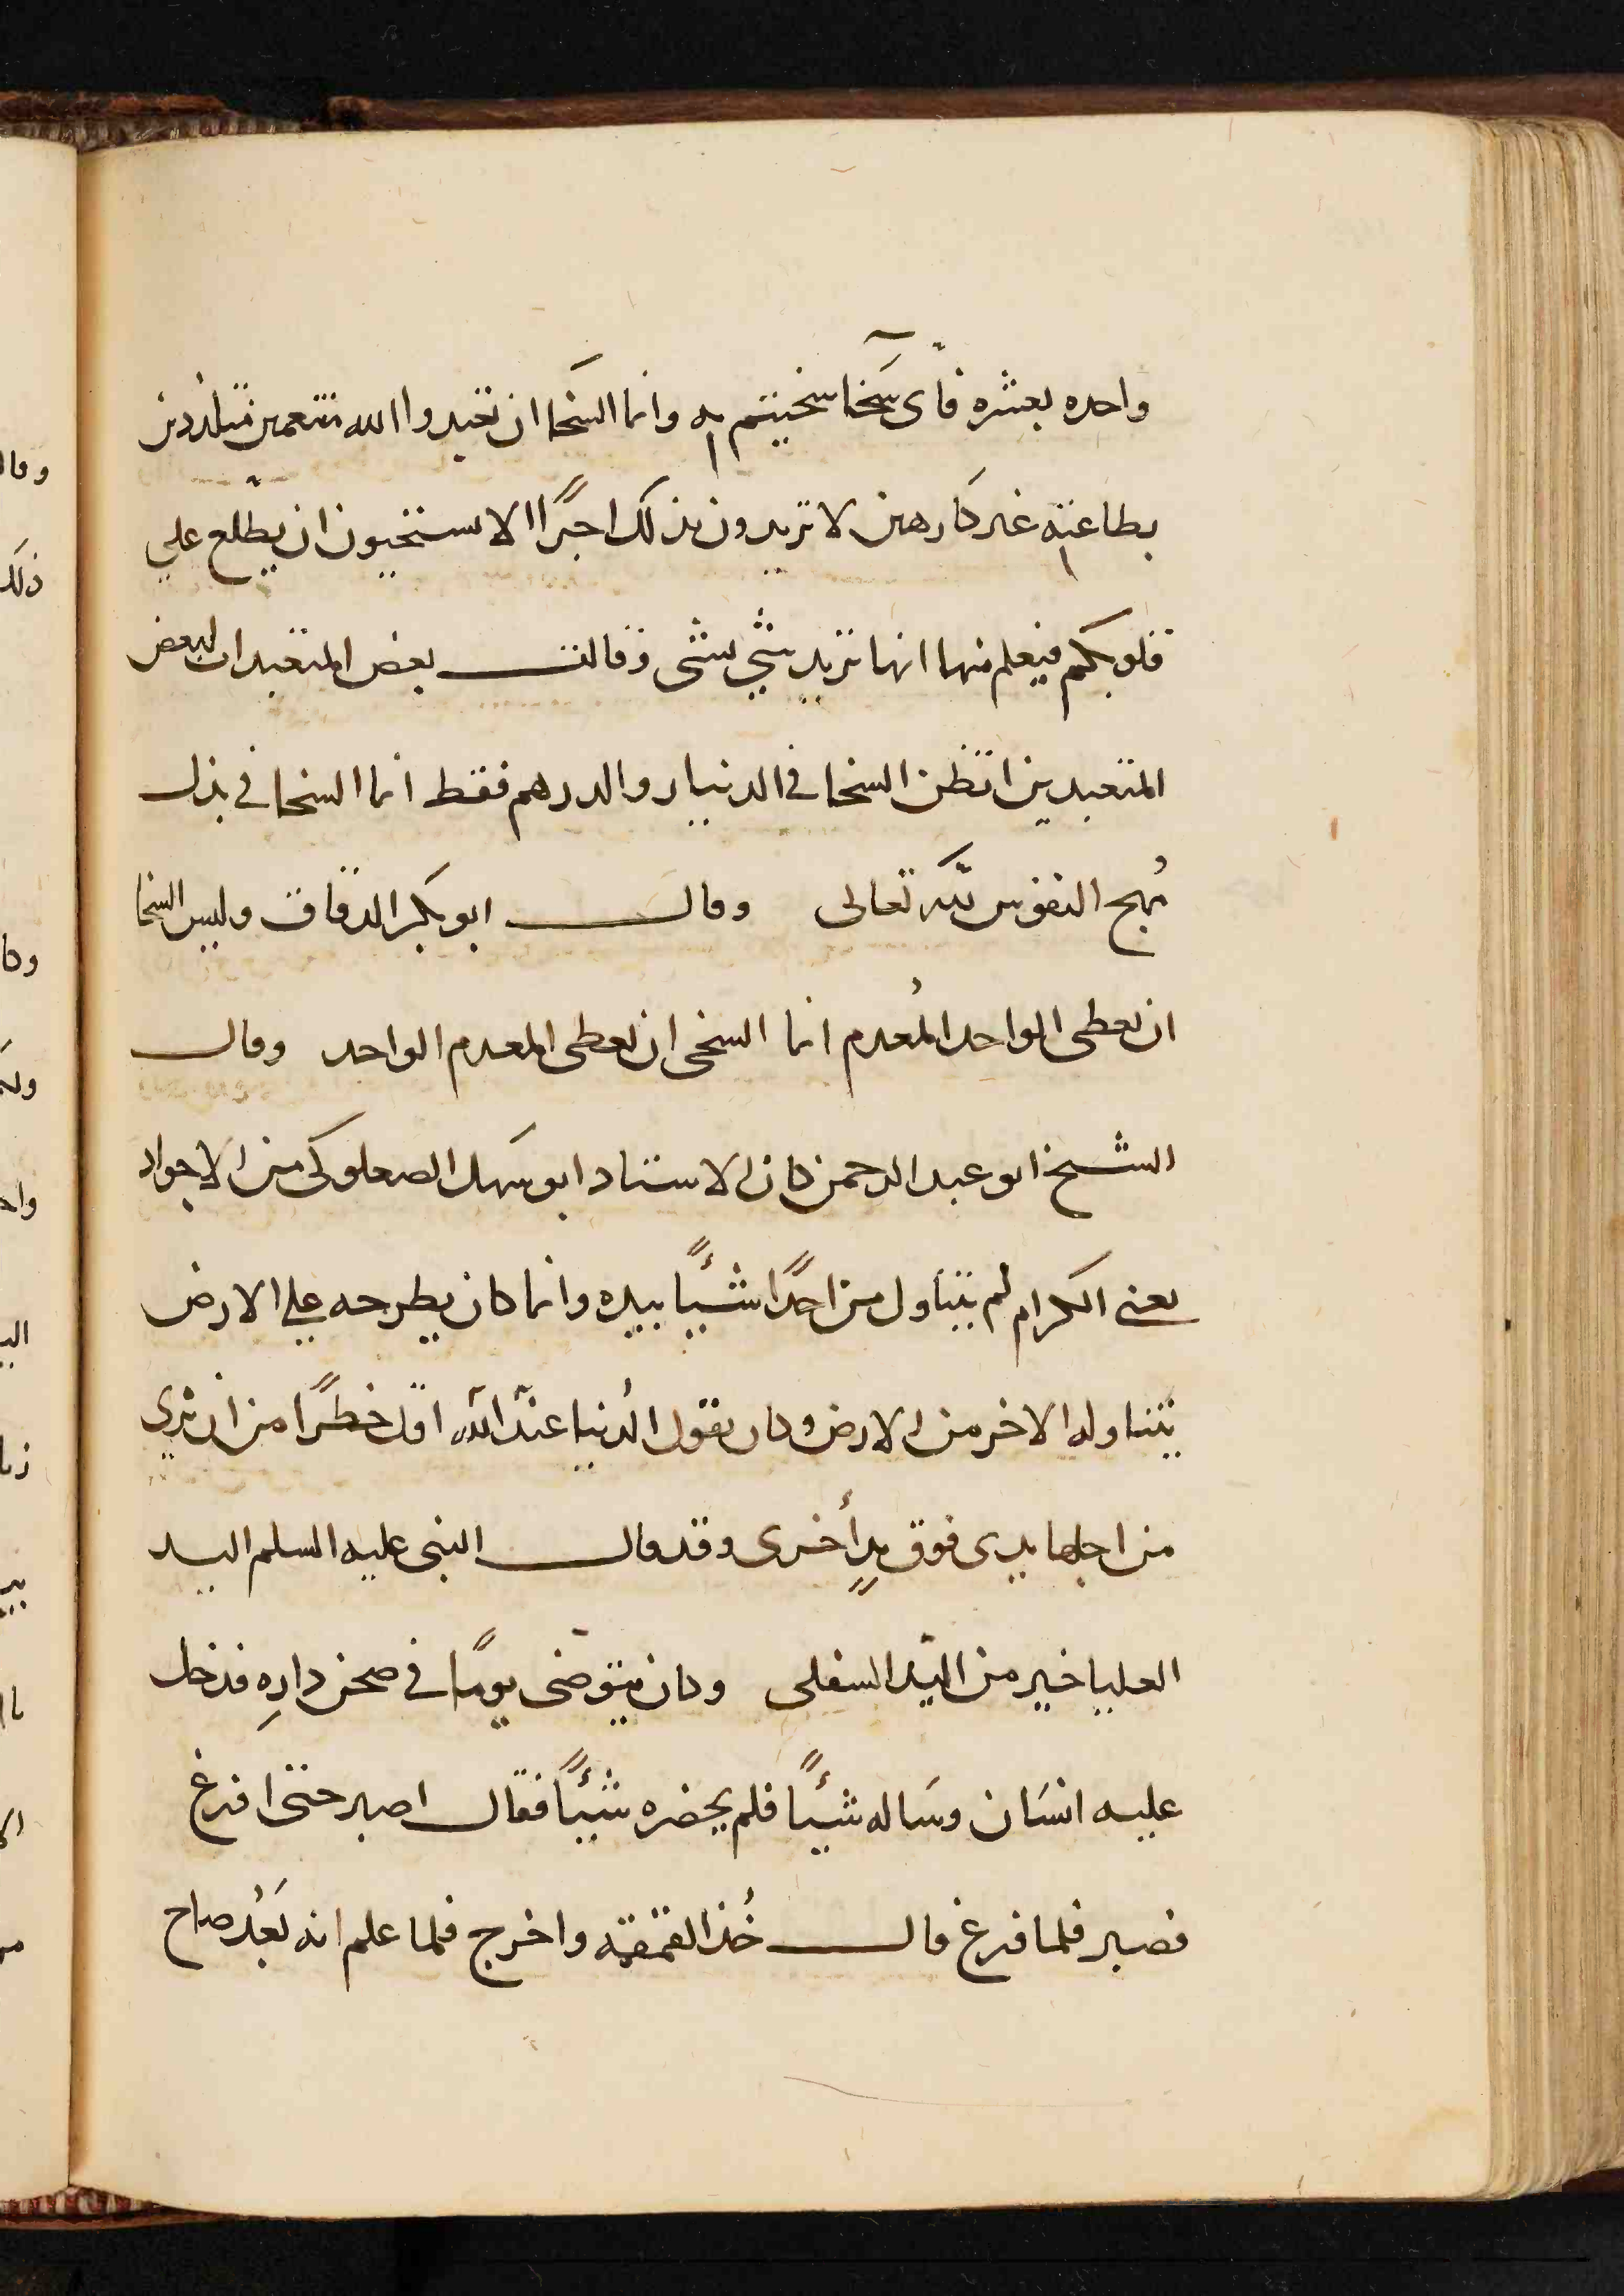 واحده بعشره فأى سَخَا سخيتم به وانما السَخَا ان تعبدوا الله متنعمين متلذذين
بطاعته غير كارهين لا تريدون بذلك اجرًا الا تستحيون ان يطّلع علي
قلوبكم فيعلم منها انها تريد شي بشى وقالت بعض المتعبدات لبعض
المتعبدين اتظن السخا في الدنيار والدرهم فقط انما السخا في بذل
مُهج النفوس لله تعالى وقال ابو بكر الدقاق وليس السخا
ان يعطى الواجد المُعدم انما السخى ان يعطى المعدم الواجد وقال
الشيخ ابو عبد الرحمن كان الاستاد ابو سَهل الصعلوكى من الاجواد
يعنى الكرام لم يتناول من احدًا شيئًا بيده وانما كان يطرحه علي الارض
يتناوله الاخر من الارض وكان يقول الدُنيا عند الله اقل خطرًا من ان ترى
من اجلها يدى فوق يدٍ أخرى وقد قال النبى عليه السلم اليد
العليا خير من اليد السفلى وكان يتوضى يومًا في صحن دارِه فدخل
عليه انسَان وسَاله شيئًا فلم يحضره شيئًا فقال اصبر حتى افرغ
فصبر فلما فرغ قال خُذ القمقمه واخرج فلما علم انه بَعُد صاح